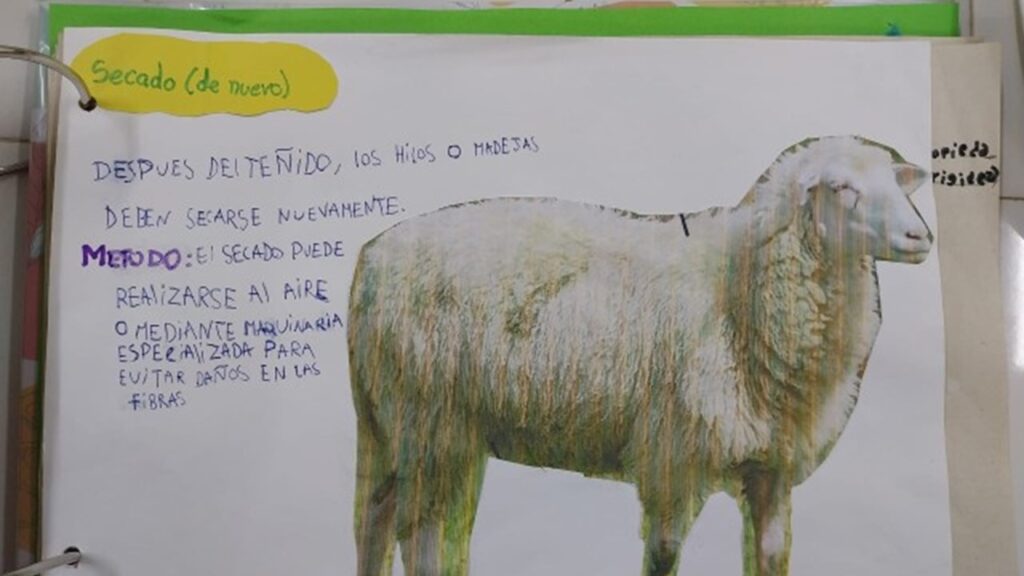 Secado (de nuevo)
DESPUES DEL TEÑIDO, los HiLOS O MADEJAS
DEBEN SECARSE NUEVAMENTE.
METODO: El SECADO PUEDE
REALIZARSE Al AIRE
O MEDIANTE MAQUINARIA
ESPECIALIZADA PARA
EVITAR DAÑOS EN LAS
FIBRAS